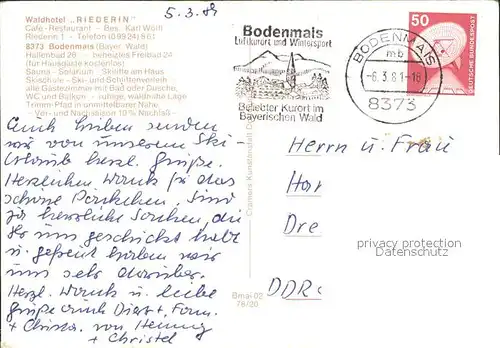 Waldhotel „RIEDERIN"
Café-Restaurant - Bes. Karl Wölfl
Riederin 1 - Telefon (09924) 561
8373 Bodenmais (Bayer. Wald)
Hallenbad 28° - beheiztes Freibad 24°
(für Hausgäste kostenlos)
Sauna - Solarium - Skilifte am Haus
Skischule - Ski- und Schlittenverleih
alle Gästezimmer mit Bad oder Dusche,
WC und Balkon - ruhige, waldnahe Lage
Trimm-Pfad in unmittelbarer Nähe
Vor- und Nachsaison 10% Nachlaß
5.3.81
Bodenmais
Luftkurort und Wintersport
Beliebter Kurort im
Bayerischen Wald
BODENMAIS
mb
-6.3.81-16
8373
50
DEUTSCHE BUNDESPOST
Euch Lieben senden
wir von unserem Ski-
Urlaub herzl. Grüße.
Herzlichen Dank für das
schöne Päckchen. Sind
ja herrliche Sachen, die
Ihr uns geschickt habt
u. gefreut haben wir
uns sehr darüber.
Herzl. Dank u. liebe
Grüße auch
+ Christa. von Henning
+ Christel
Cramers Kunstanstalt
Bmai 02
76/30
Herrn u. Frau
Har
Dre
DDR
privacy protection
Datenschutz